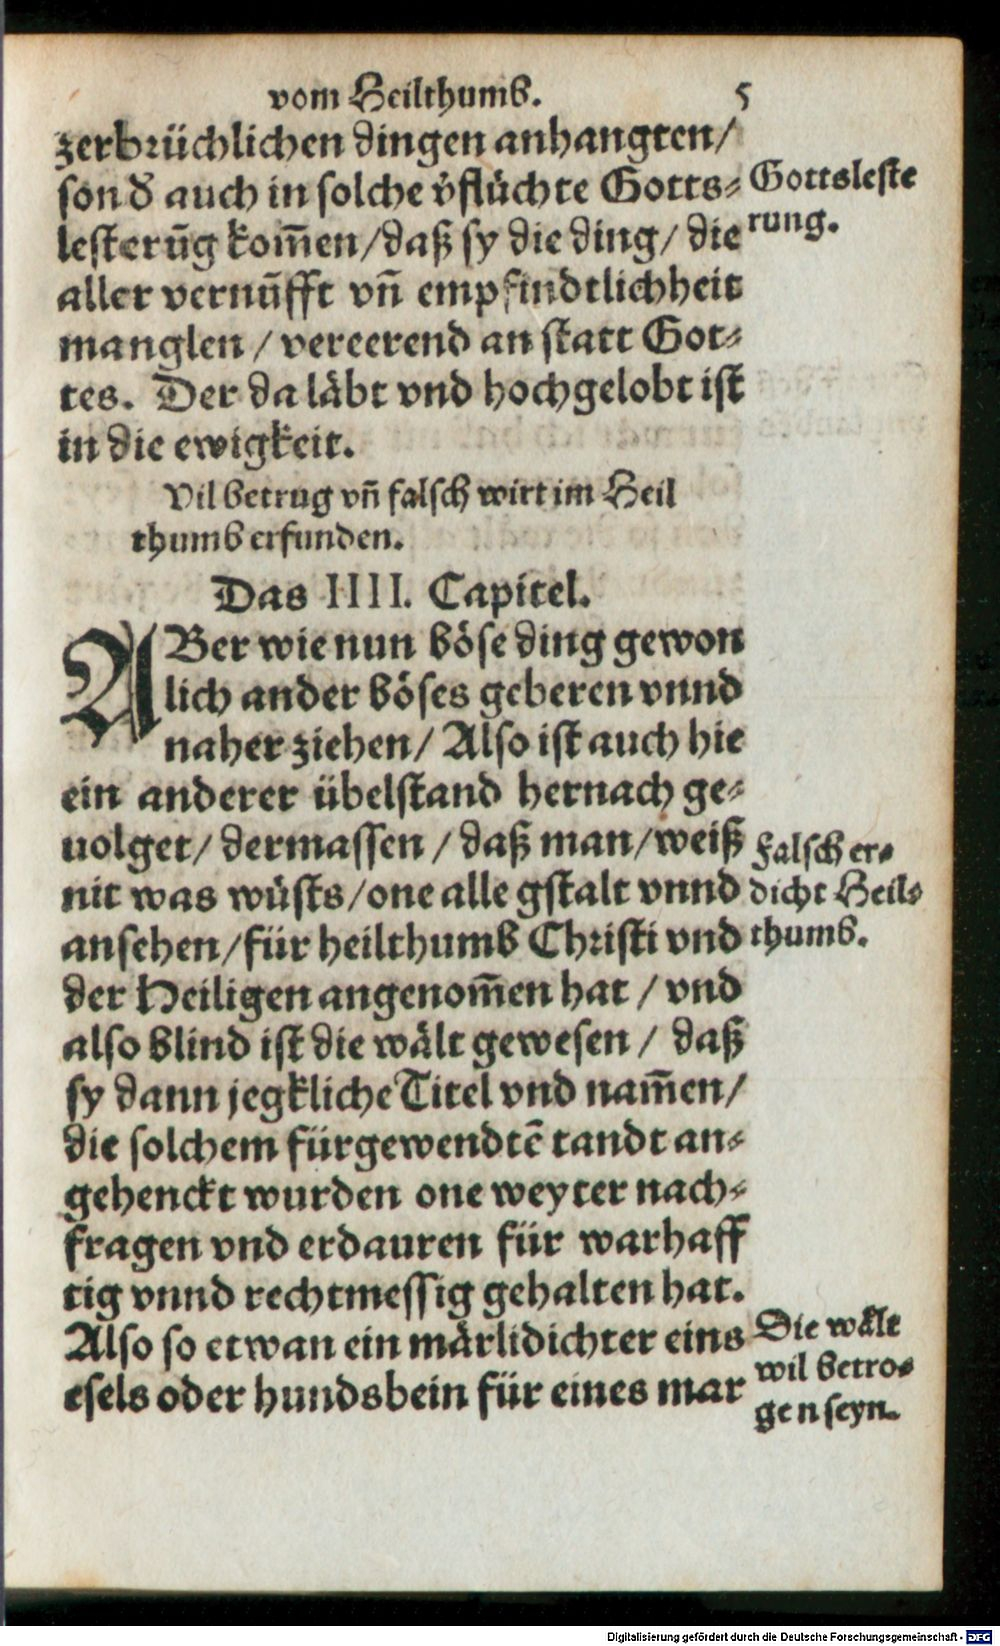 vom Heilthumb. 5
zerbrüchlichen dingen anhangten/
sond̕ auch in solche v̕flüchte Gotts-
lesterūg kom̄en/daß sy die ding/ die
aller vernūfft vn̄ empfindtlichheit
manglen / vereerend an statt Got-
tes. Der da läbt vnd hochgelobt ist
in die ewigkeit.
Gottsleste
rung.
Vil betrug vn̄ falsch wirt im Heil
thumb erfunden.
Das IIII. Capitel.
ABer wie nun böse ding gewon
lich ander böses geberen vnnd
naher ziehen/ Also ist auch hie
ein anderer übelstand hernach ge-
uolget/ dermassen / daß man/weiß
nit was wüsts/one alle gstalt vnnd
ansehen/für heilthumb Christi vnd
der Heiligen angenom̄en hat / vnd
also blind ist die wält gewesen / daß
sy dann jegkliche Titel vnd nam̄en/
die solchem fürgewendtē tandt an-
gehenckt wurden one weyter nach-
fragen vnd erdauren für warhaff
tig vnnd rechtmessig gehalten hat.
Also so etwan ein märlidichter eins
esels oder hundsbein für eines mar
Falsch er-
dicht Heil-
thumb.
Die wält
wil betro-
gen seyn.
Digitalisierung gefördert durch die Deutsche Forschungsgemeinschaft - DFG